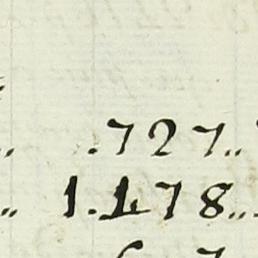 .727..
1.178..